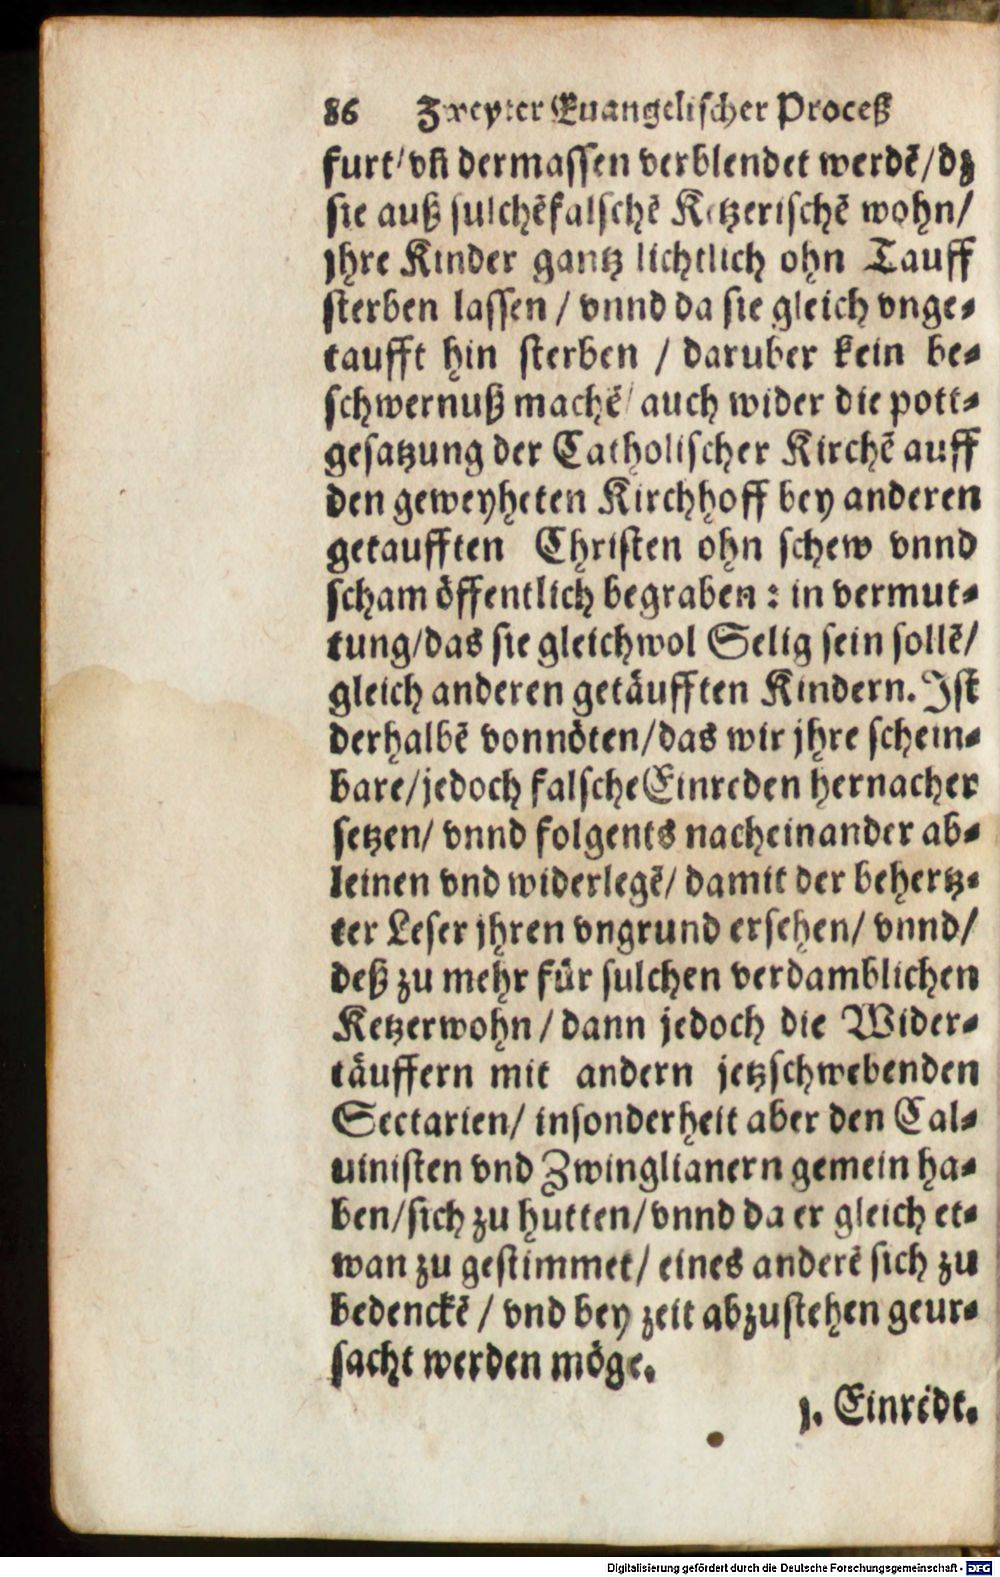 86 Zweyter Euangelischer Proceß
furt/ vñ dermassen verblendet werdẽ/dz
sie auß sulchẽ falschẽ Ketzerischẽ wohn/
jhre Kinder gantz lichtlich ohn Tauff
sterben lassen / vnnd da sie gleich vnge⸗
taufft hin sterben / daruber kein be⸗
schwernuß machẽ/ auch wider die pott⸗
gesatzung der Catholischer Kirchẽ auff
den geweyheten Kirchhoff bey anderen
getaufften Christen ohn schew vnnd
scham öffentlich begraben : in vermut⸗
tung/das sie gleichwol Selig sein sollẽ/
gleich anderen getäufften Kindern. Ist
derhalbẽ vonnöten/das wir jhre schein⸗
bare/jedoch falsche Einreden hernacher
setzen/ vnnd folgents nacheinander ab⸗
leinen vnd widerlegẽ/ damit der behertz⸗
ter Leser jhren vngrund ersehen/ vnnd/
deß zu mehr für sulchen verdamblichen
Ketzerwohn / dann jedoch die Wider⸗
täuffern mit andern jetzschwebenden
Sectarien/ insonderheit aber den Cal⸗
uinisten vnd Zwinglianern gemein ha⸗
ben/sich zu hutten/vnnd da er gleich et⸗
wan zu gestimmet/ eines anderẽ sich zu
bedenckẽ / vnd bey zeit abzustehen geur⸗
sacht werden möge.
j. Einredt.
Digitalisierung gefördert durch die Deutsche Forschungsgemeinschaft - DFG